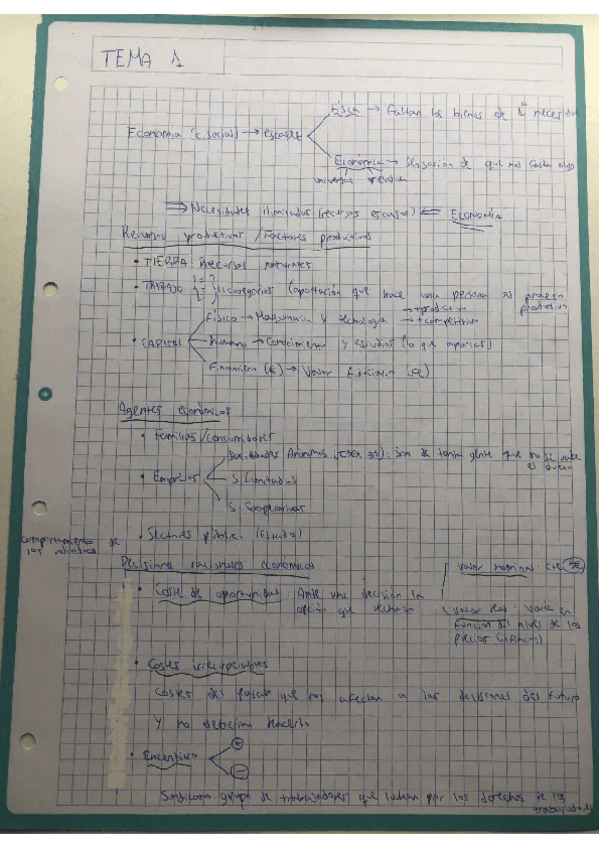 TEMA 1
Física → Faltan los bienes de 1ª necesidad
Economía (c. social) → escasez
Económica → Sensación de que nos falta algo
universal relativa
⇒ Necesidades ilimitadas (recursos escasos) ⇐ ECONOMÍA
Recursos productivos / Factores productivos
• TIERRA: Recursos naturales
• TRABAJO categorías (aportación que hace una persona al proceso productivo
Físico → Maquinaria y tecnología → + productivo
→ + competitivo
• CAPITAL Humano → Conocimiento y estudios (lo que aportas)
Financiero (€) → Valor
Agentes económicos
• Familias / consumidores
Sociedades Anónimas: son de tanta gente que no se sabe
• Empresas S. Limitadas
S. Cooperativas
• Sectores público (Estado)
comportamiento de los
Decisiones racionales económicas
valor nominal
• Coste de oportunidad: Ante una decisión la
opción que rechazo
valor real: varía en
función del nivel de los
precios
• Costes irrecuperables
Costes del pasado que no afectan a las decisiones del futuro
Y no deberían hacerlo
• Incentivo + −
Sindicato grupo de trabajadores que luchan por los derechos de los trabajadores